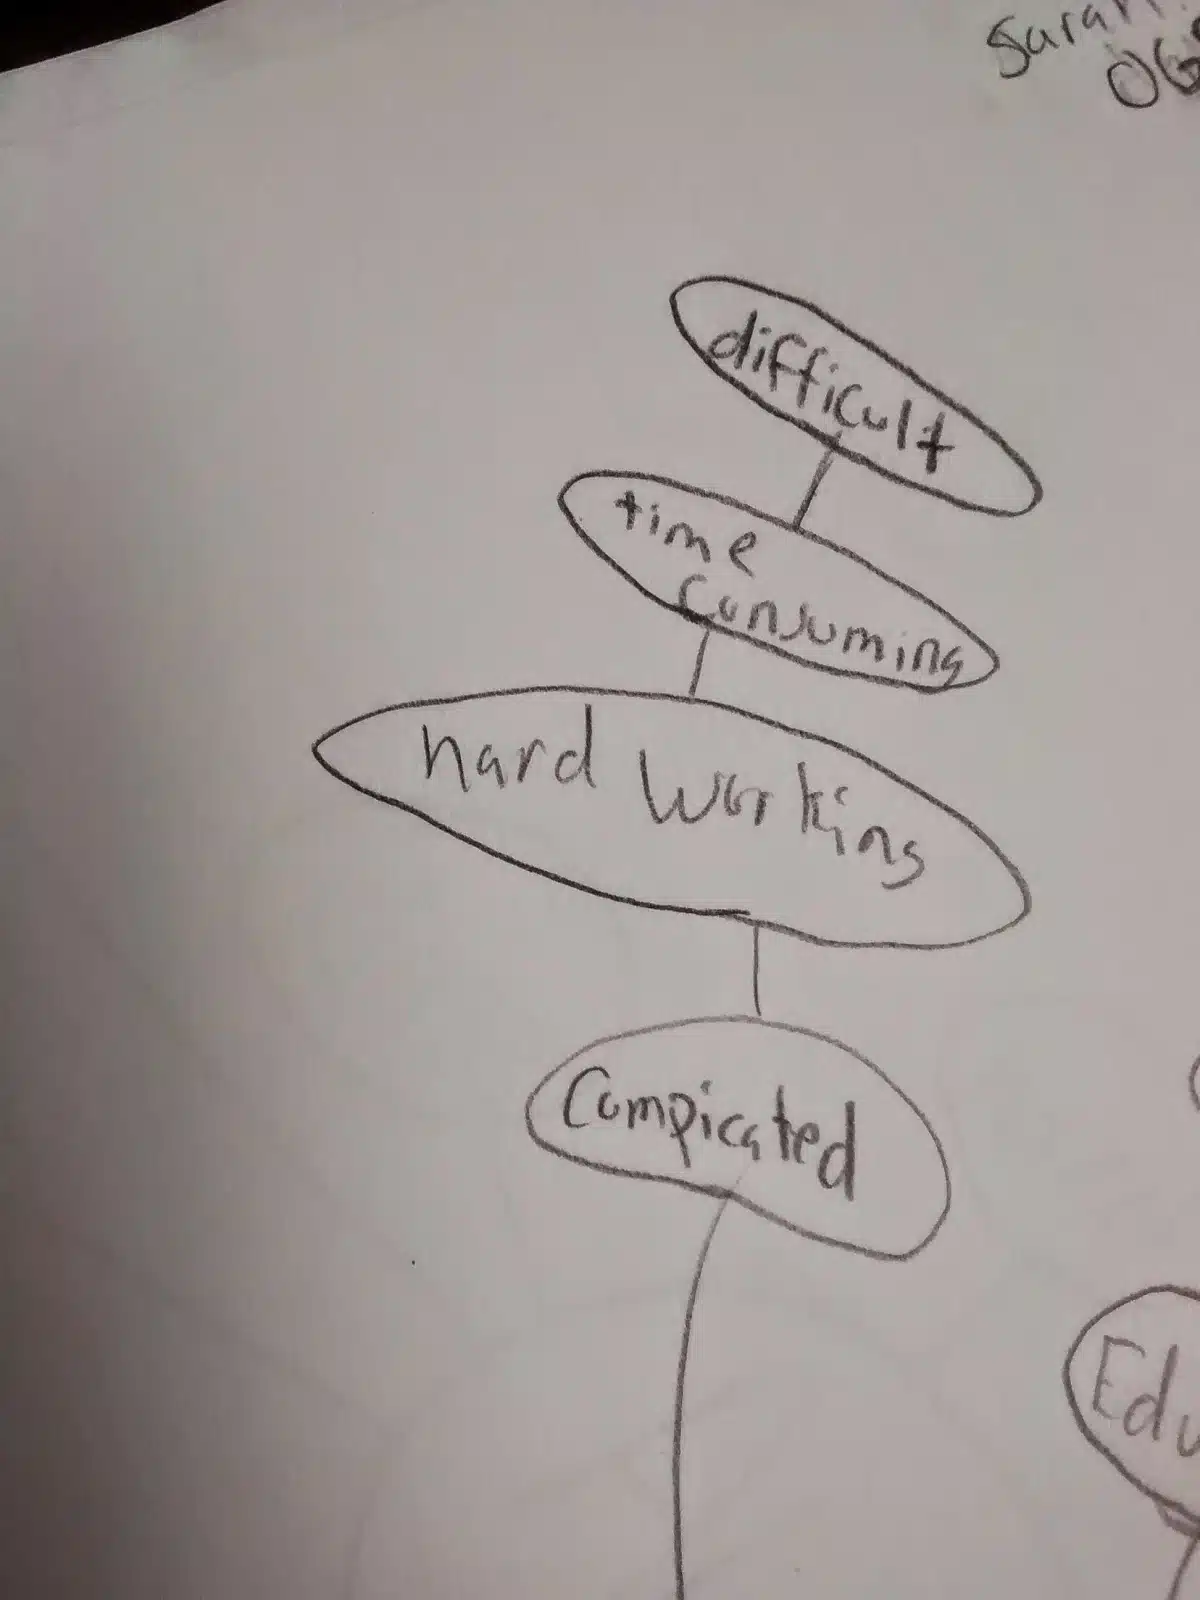 Sarah
difficult
time
consuming
hard working
Compicated
Edu